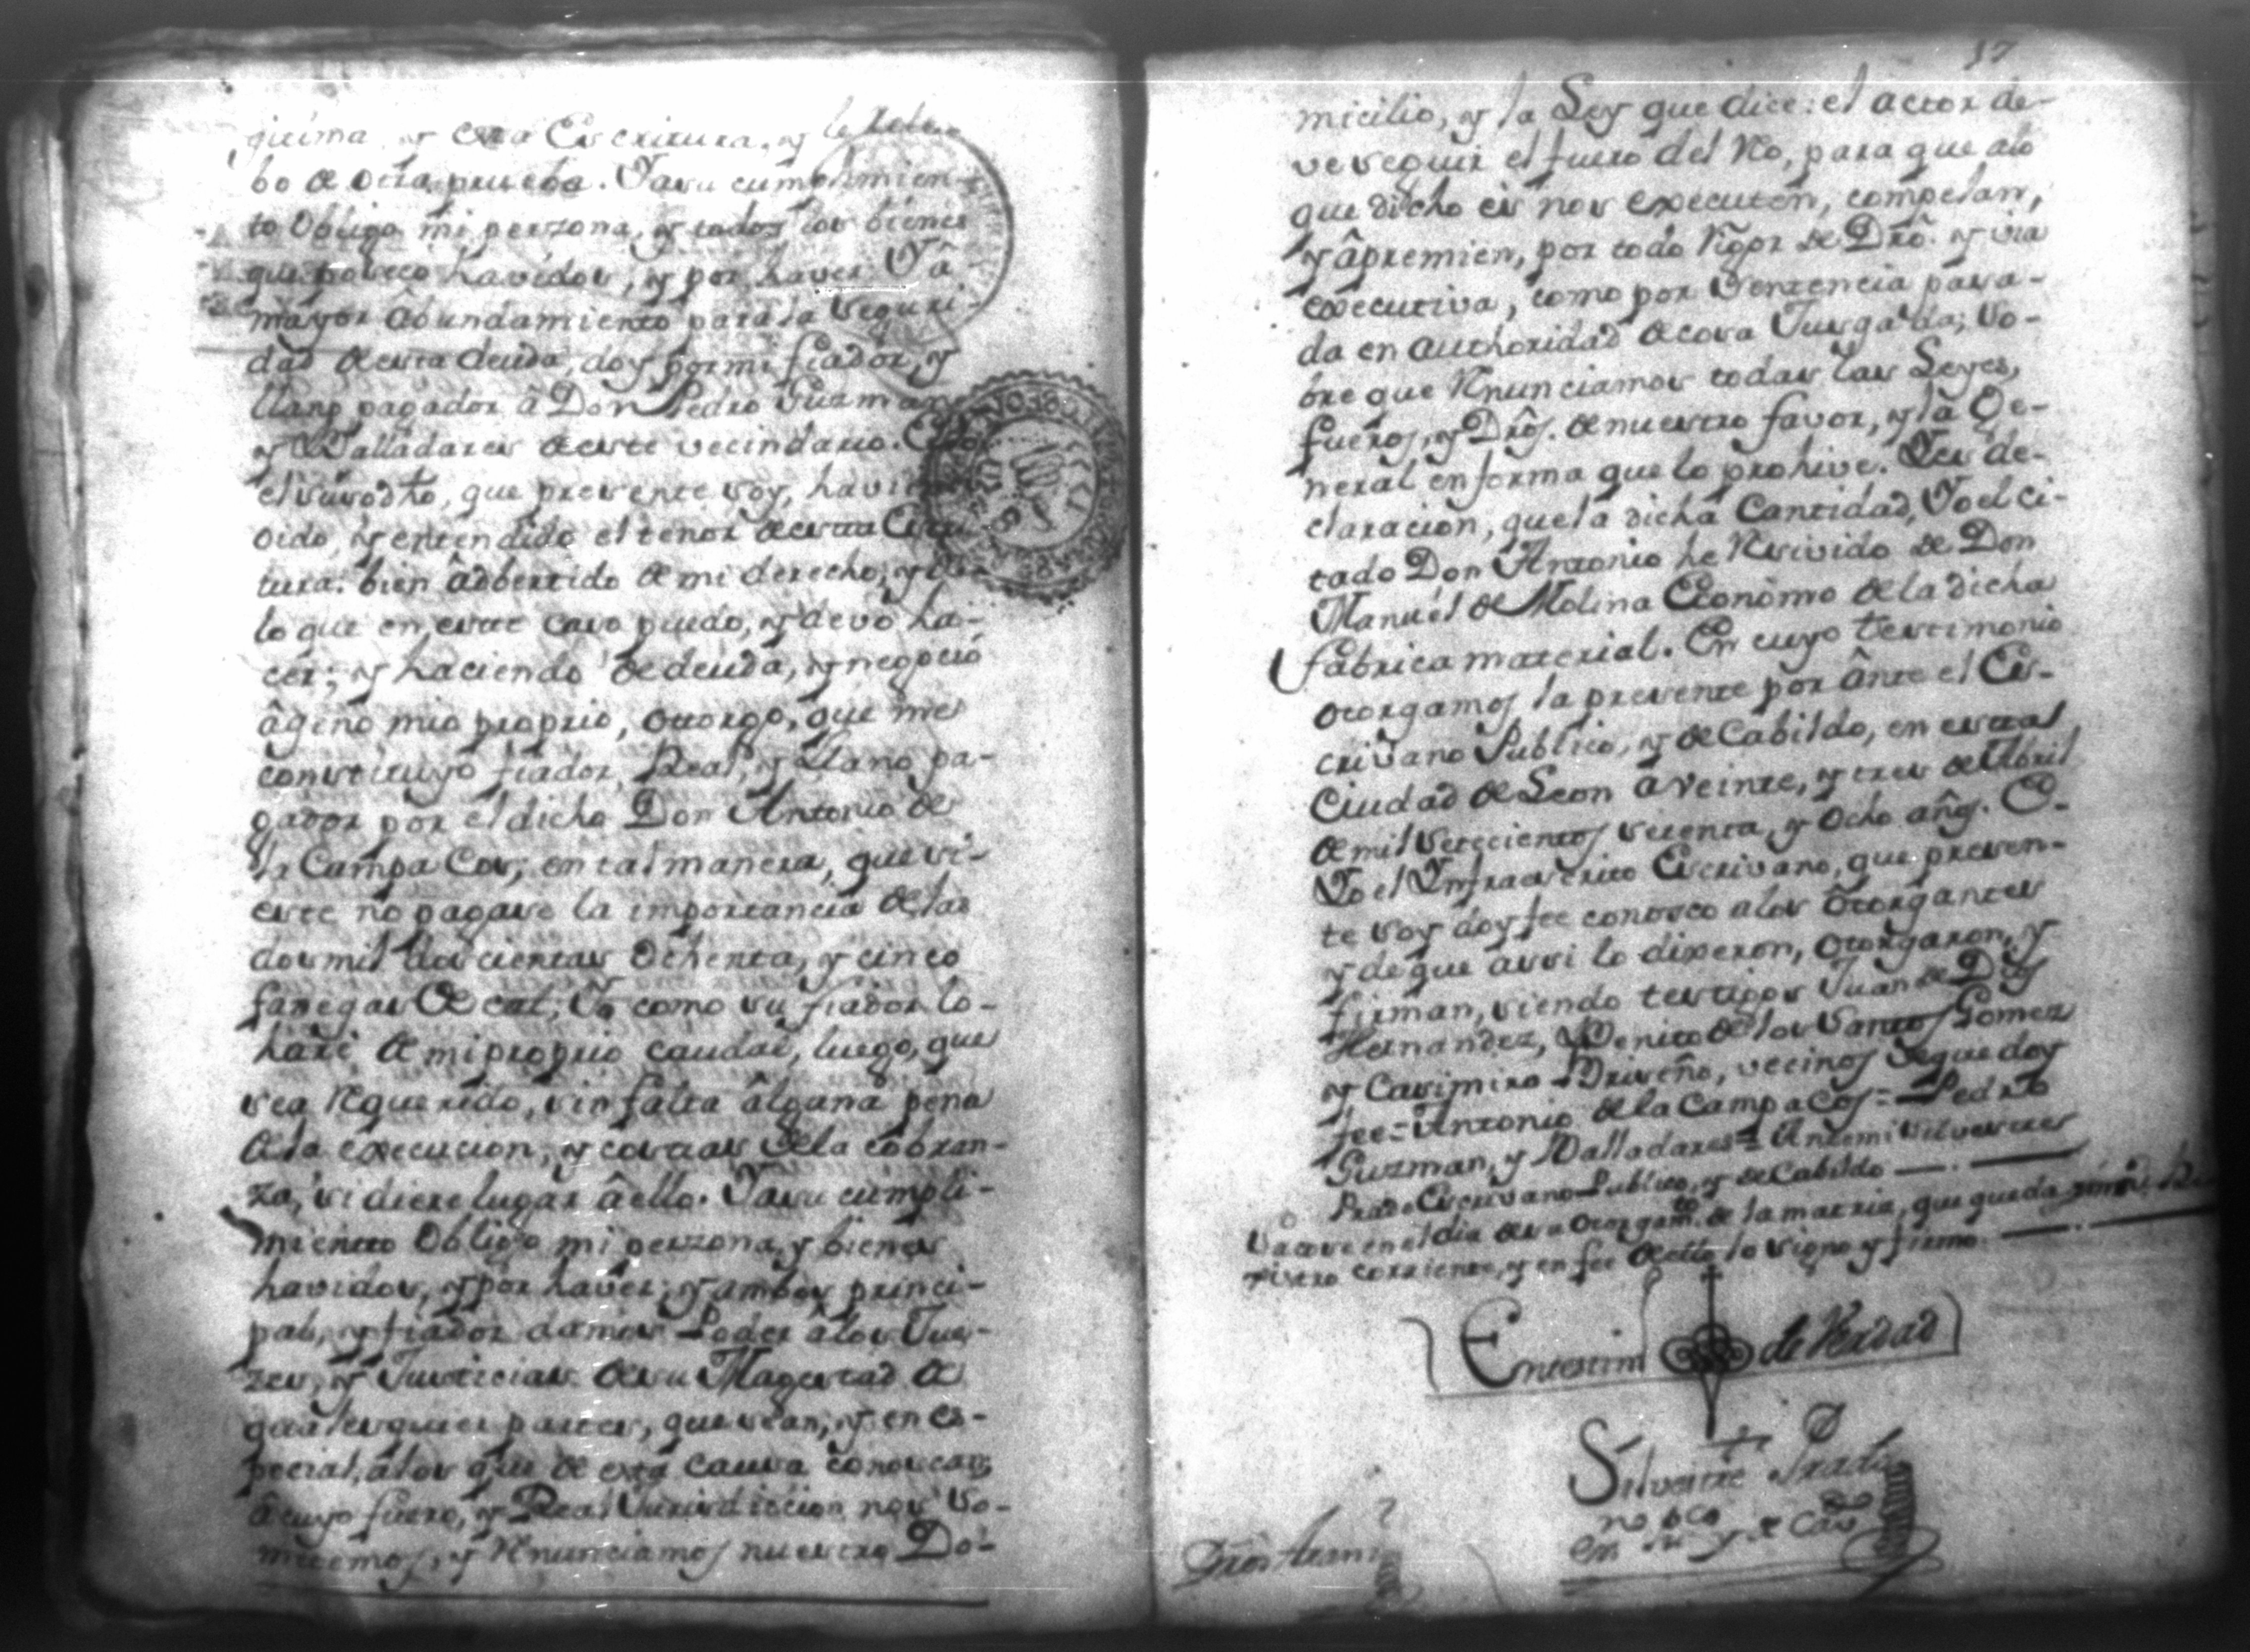 guima, y esta Escritura, y le rele-
bo de otra prueba. Y a su cumplimien-
to obligo mi perzona, y todos los bienes
que poseeo havidos, y por haver. Y â
mayor âbundamiento para la seguri-
dad de esta deuda, doy por mi fiador, y
llano pagador â Don Pedro Guzman
y Valladares de este vecindario. E Yo
el susodho, que presente soy, haviendo
oido, y entendido el tenor de esta Escri
tura: bien âdbertido de mi derecho, y de
lo que en este caso puedo, y devo ha-
cer; y haciendo de deuda, y negocio
âgeno mio proprio, otorgo, que me
constituyo fiador, Real, y Llano pa-
gador por el dicho Don Antonio de
la Campa Cos; en tal manera, que si
este no pagase la importancia de las
dos mil doscientas ochenta, y cinco
fanegas de cal, Yo como su fiador lo
haré de mi proprio caudal, luego, que
sea Requerido, sin falta âlguna pena
de la execucion, y costas de la cobran-
za, si diere lugar â ello. Y a su cumpli-
miento obligo mi perzona, y bienes
havidos, y por haver; y ambos princi-
pal, y fiador damos Poder â los Jue-
zes, y Justicias de su Magestad de
qualesquier partes, que sean, y en es-
pecial, â los que de esta causa conoscan;
â cuyo fuero, y Real Jurisdiccion nos so-
metemos, y Renunciamos nuestro Do-
17
micilio, y la Ley que dice: el actor de-
ve seguir el fuero del Reo, para que a lo
que dicho es nos executen, compelan,
y âpremien, por todo Rigor de Dro. y via
executiva, como por Sentencia pasa-
da en authoridad de cosa Jusgada; so-
bre que Renunciamos todas las Leyes,
fueros, y Dros. de nuestro favor, y la Ge-
neral en forma que lo prohive. Y es de-
claracion, que la dicha Cantidad, Yo el ci-
tado Don Antonio he Resivido de Don
Manuel de Molina Econômo de la dicha
fabrica material. En cuyo testimonio
otorgamos la presente por ânte el Es-
crivano Publico, y de Cabildo, en esta
Ciudad de Leon a veinte, y tres de Abril
de mil setecientos setenta, y ocho años. E
Yo el Infraescrito Escrivano, que presen-
te soy doy fee conosco a los Otorgantes
y de que assi lo dixeron, otorgaron, y
firman, siendo testigos Juan de Dios
Hernandez, Benito de los Santos Gomez
y Casimiro Briseño, vecinos de que doy
fee = Antonio de la Campa Cos = Pedro
Guzman, y Valladares = Antemi Silvestre
Prado Escrivano Publico, y de Cabildo
Sacose en el dia de su otorgamto. de la matris, que queda
gistro corriente, y en fee de ello lo signo y firmo.
En testim de Verdad
Silvestre Prado